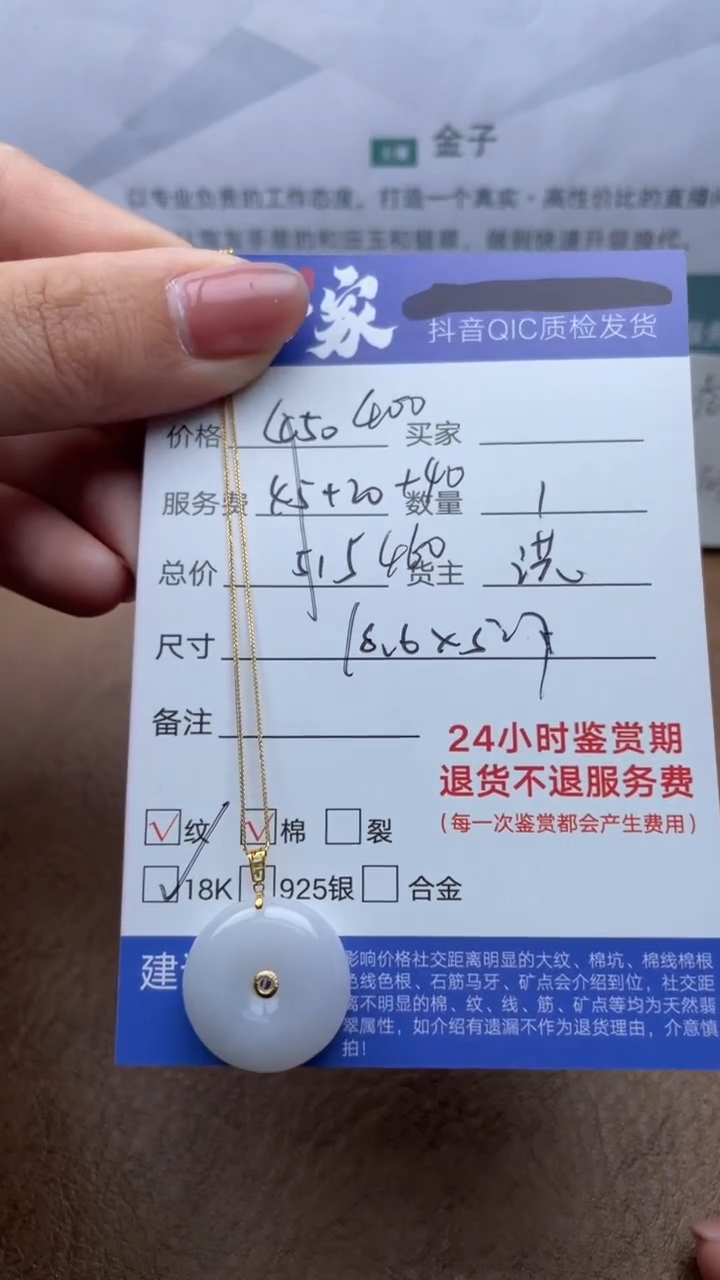 金子
以专业负责的工作态度，打造一个真实·高性价比的直播
家
抖音QIC质检发货
价格 450 400 买家
服务费 45+20 +40 数量 1
总价 515 460 货主 洪
尺寸 18.6×5
备注
24小时鉴赏期
退货不退服务费
(每一次鉴赏都会产生费用)
纹 棉 裂
18K 925银 合金
建
影响价格社交距离明显的大纹、棉坑、棉线棉根
色线色根、石筋马牙、矿点会介绍到位，社交距
离不明显的棉、纹、线、筋、矿点等均为天然翡
翠属性，如介绍有遗漏不作为退货理由，介意慎
拍！